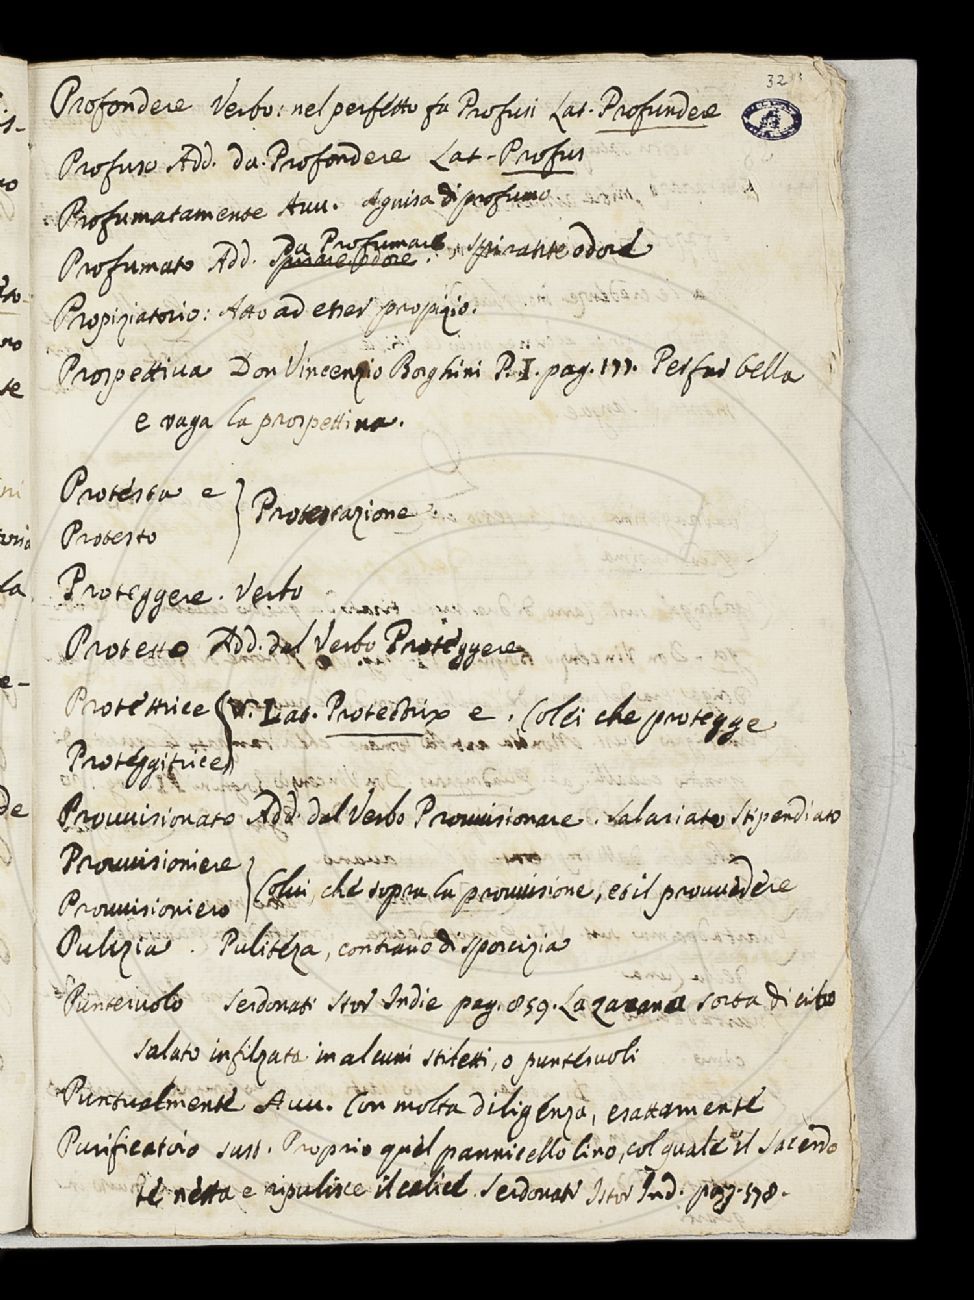 32
Profondere Verbo: nel perfetto fa Profusi Lat. Profundere
Profuso Add. da Profondere Lat. Profus
Profumatamente Auu. Aguisa di profumo
da Profumare
Profumato Add. Spirare odore. , spirante odore
Propiziatorio: Atto ad esser propizio.
Prospettiua Don Vincenzio Borghini P. I. pag. 177. Per far bella
e vaga la prospettiua.
Protesta e
Protesto } Protestazione.
Proteggere. Verbo
Protetto Add. dal Verbo Proteggere
Protettrice { V. Lat. Protectrix e. Colei che protegge
Proteggitrice
Prouuisionato Add. dal Verbo Prouuisionare. Salariato Stipendiato
Prouuisioniere
Prouuisioniero } Colui, che sopra la prouuisione, et il prouuedere
Pulizia. Pulitezza, contrario di sporcizia
Punteruolo Serdonati Stor Indie pag. 859. La zarana sorta di cibo
salato infilzato in alcuni stiletti, o punteruoli
Puntualmente Auu. Con molta diligenza, esattamente
Purificatoio sust. Proprio quel pannicello lino, col quale il Sacerdo
te netta e ripulisce il calice Serdonati Istor Ind. pag. 578.